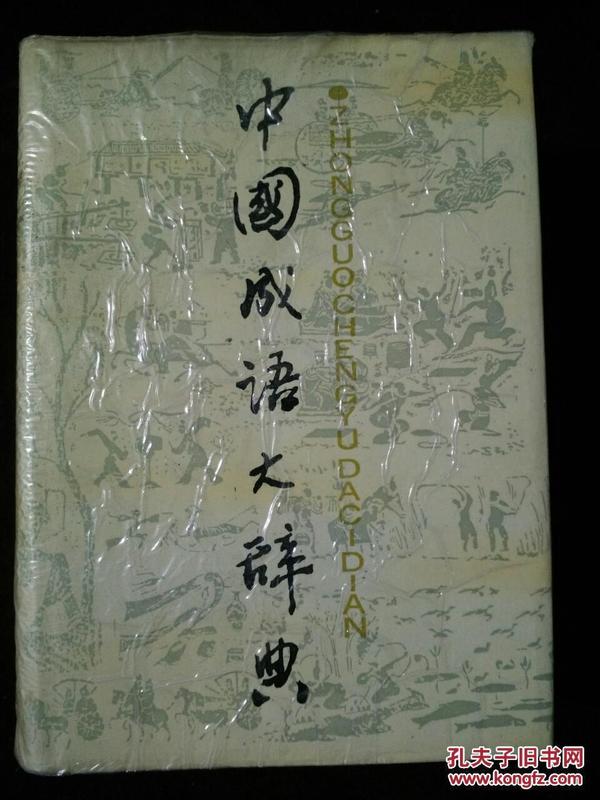 中國成语大辞典
ZHONGGUOCHENGYUDACIDIAN
孔夫子旧书网
www.kongfz.com